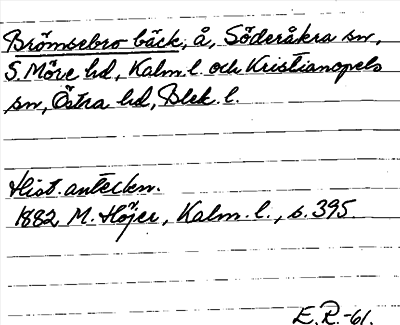 Brömsebro bäck, å, Söderåkra sn,
S. Möre hd, Kalm. l. och Kristianopels
sn, Östra hd, Blek. l.
Hist. anteckn.
1882 M. Höjer, Kalm. l., s. 395.
E.R.-61.